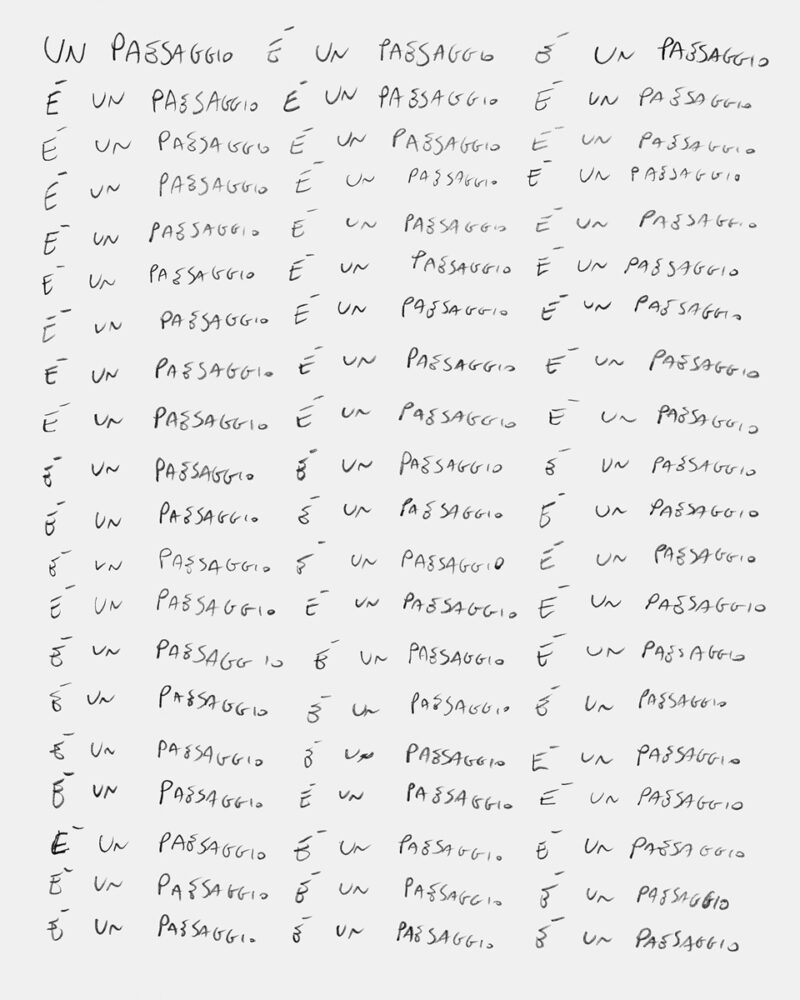 UN PAESAGGIO É UN PAESAGGIO É UN PAESAGGIO
É UN PAESAGGIO É UN PAESAGGIO É UN PAESAGGIO
É UN PAESAGGIO É UN PAESAGGIO É UN PAESAGGIO
É UN PAESAGGIO É UN PAESAGGIO É UN PAESAGGIO
É UN PAESAGGIO É UN PAESAGGIO É UN PAESAGGIO
É UN PAESAGGIO É UN PAESAGGIO É UN PAESAGGIO
É UN PAESAGGIO É UN PAESAGGIO É UN PAESAGGIO
É UN PAESAGGIO É UN PAESAGGIO É UN PAESAGGIO
É UN PAESAGGIO É UN PAESAGGIO É UN PAESAGGIO
É UN PAESAGGIO É UN PAESAGGIO É UN PAESAGGIO
É UN PAESAGGIO É UN PAESAGGIO É UN PAESAGGIO
É UN PAESAGGIO É UN PAESAGGIO É UN PAESAGGIO
É UN PAESAGGIO É UN PAESAGGIO É UN PAESAGGIO
É UN PAESAGGIO É UN PAESAGGIO É UN PAESAGGIO
É UN PAESAGGIO É UN PAESAGGIO É UN PAESAGGIO
É UN PAESAGGIO É UN PAESAGGIO É UN PAESAGGIO
É UN PAESAGGIO É UN PAESAGGIO É UN PAESAGGIO
É UN PAESAGGIO É UN PAESAGGIO É UN PAESAGGIO
É UN PAESAGGIO É UN PAESAGGIO É UN PAESAGGIO
É UN PAESAGGIO É UN PAESAGGIO É UN PAESAGGIO